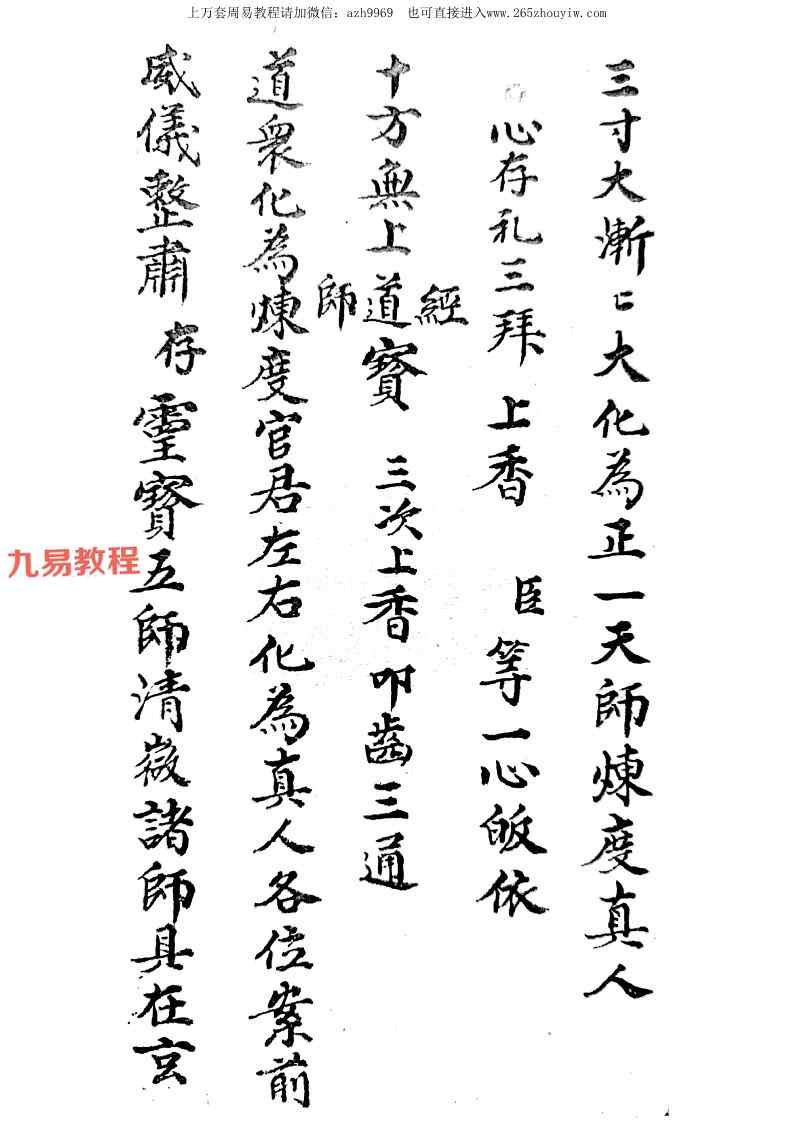 上万套周易教程请加微信：azh9969 也可直接进入www.265zhouyiw.com
三寸大漸〻大化為正一天師煉度真人
心存礼三拜 上香 臣等一心皈依
十方無上經道師寳 三次上香叩齒三通
道衆化為煉度官君左右化為真人各位案前
威儀整肅 存靈寳五師清微諸師具在玄
九易教程